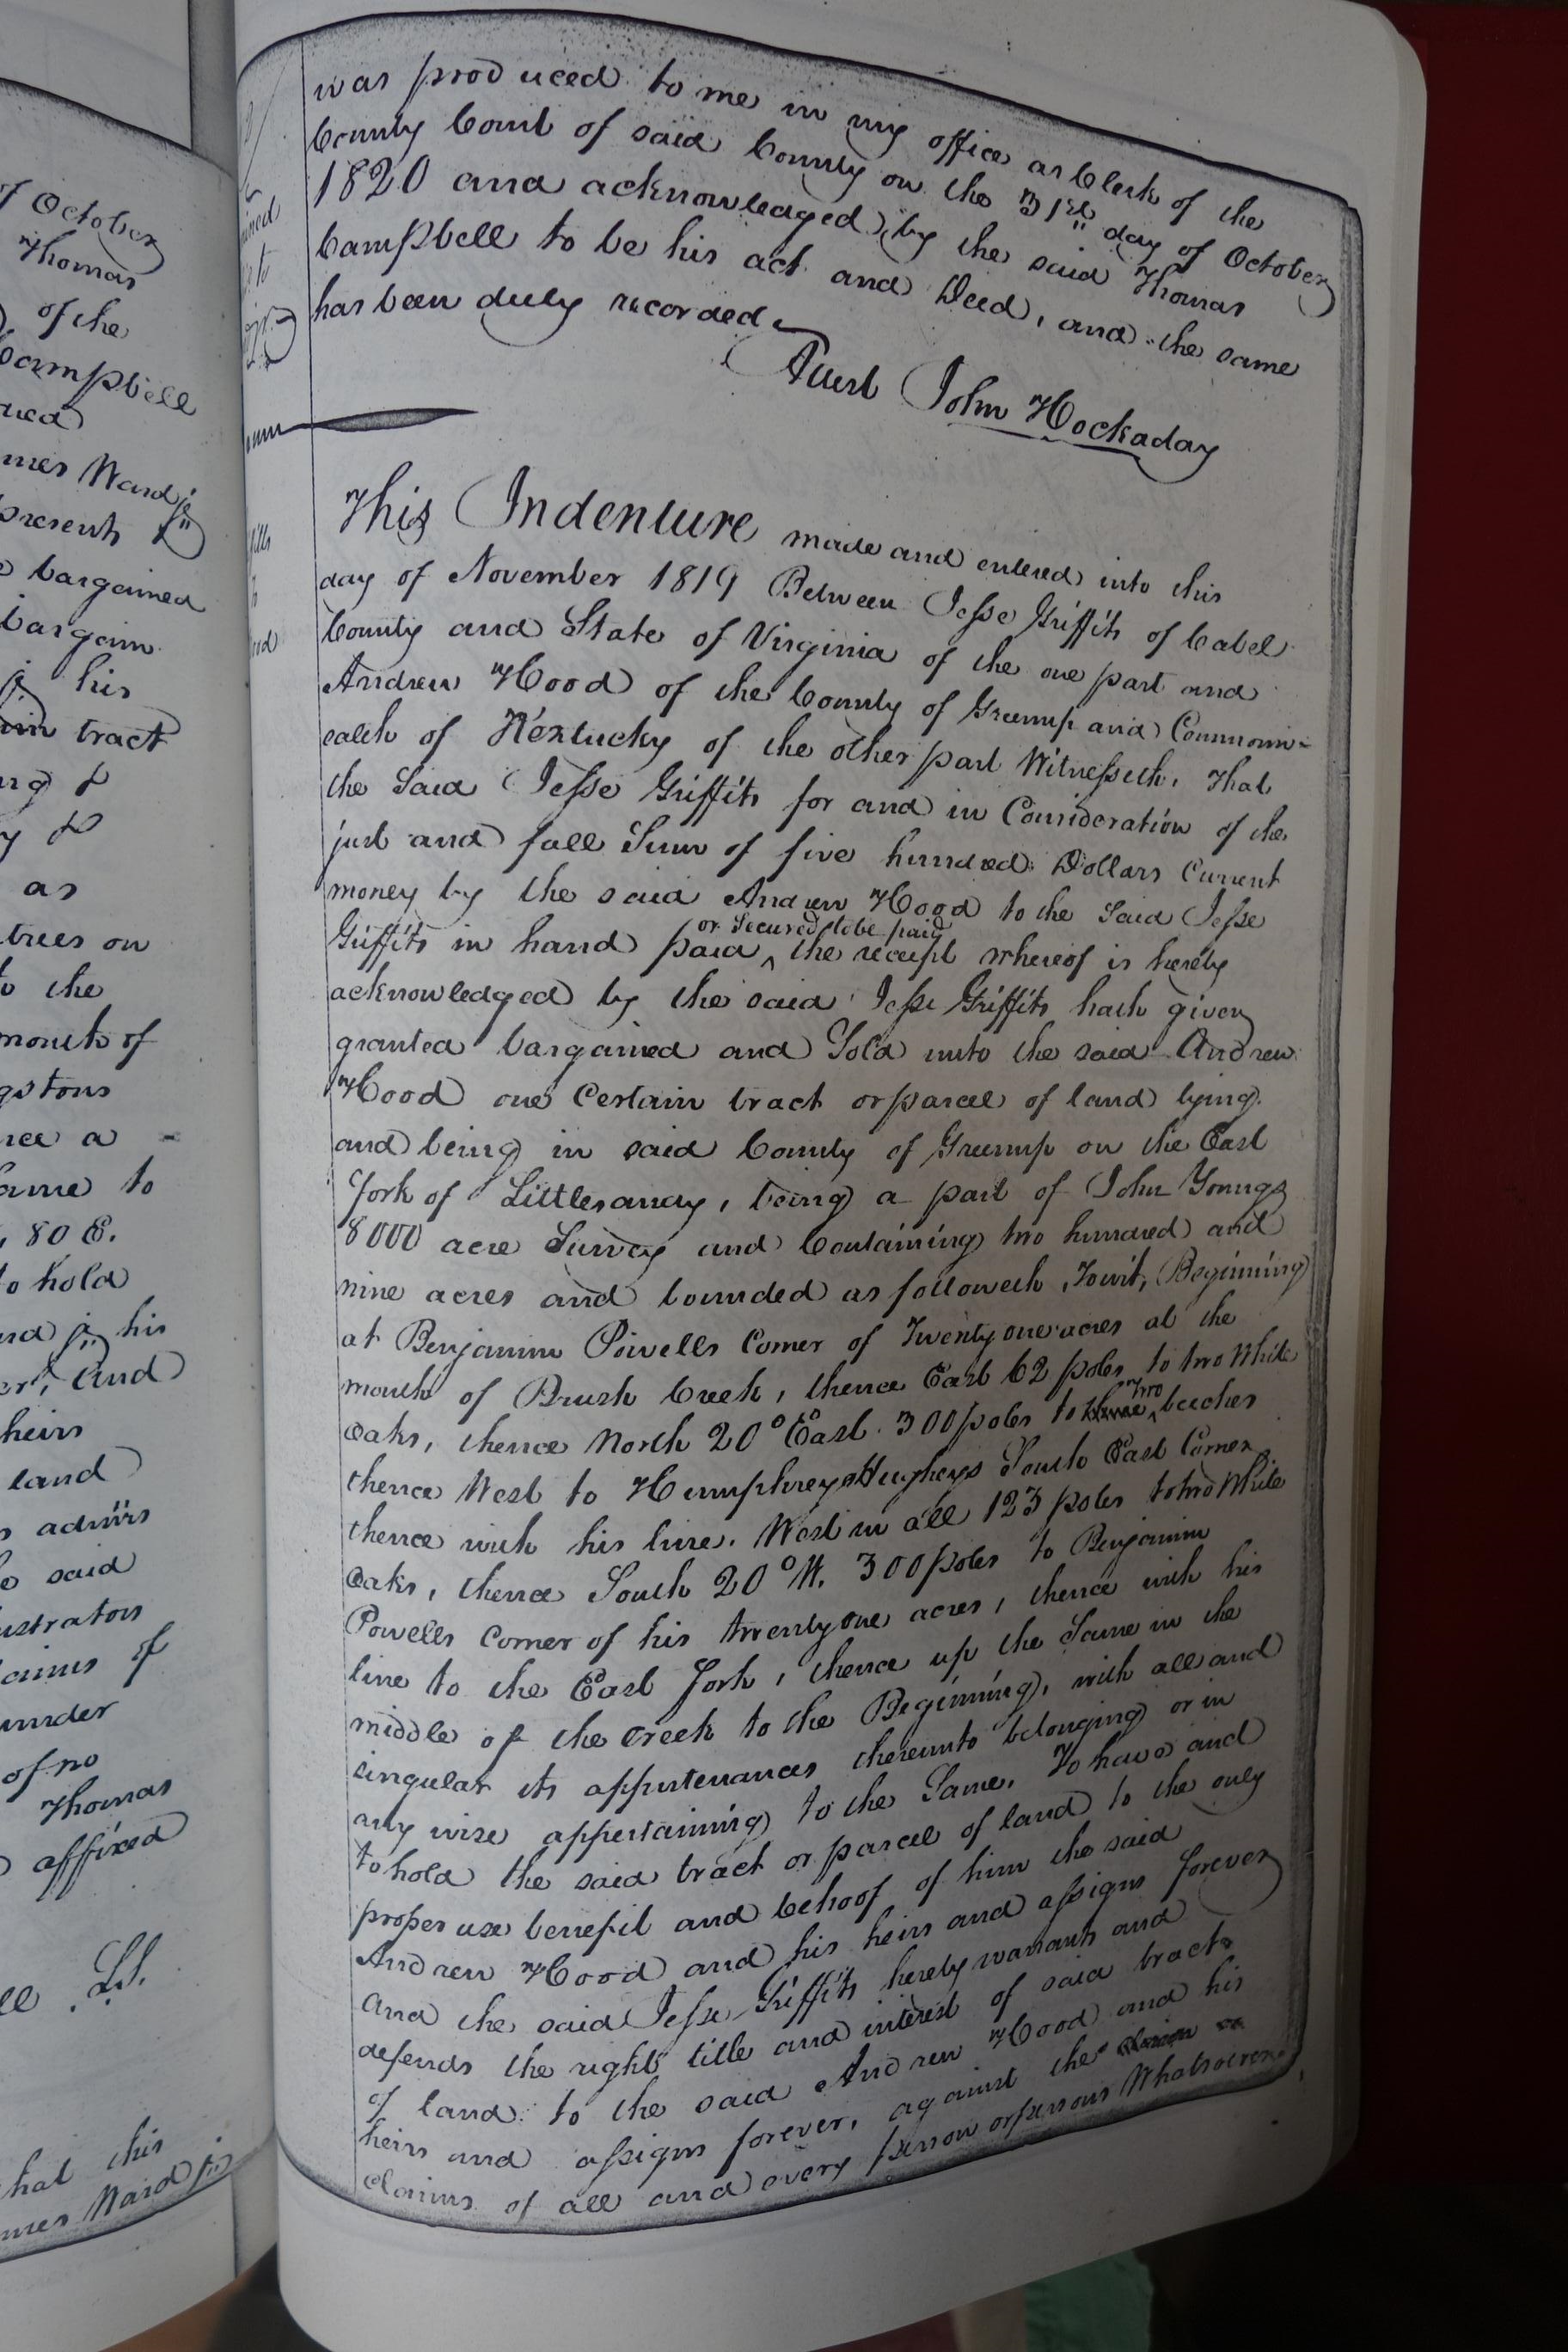 of October
Thomas
of the
Campbell
mes Ward jr
present
bargained
bargain
jr his
in tract
&
&
as
trees on
to the
mouth of
a
same to
80 E.
to hold
jr his
and
heirs
land
s admrs
said
of
under
of no
Thomas
affixed
LS.
that this
Ward jr
was produced to me in my office as Clerk of the
County Court of said County on the 31st day of October
1820 and acknowledged by the said Thomas
Campbell to be his act and Deed, and the same
has been duly recorded
Attest John Hockaday
This Indenture made and entered into this
day of November 1819 Between Jesse Griffits of Cabel
County and State of Virginia of the one part and
Andrew Hood of the County of Greenup and Commonw-
ealth of Kentucky of the other part Witnesseth, That
the Said Jesse Griffits for and in Consideration of the
just and full Sum of five hundred Dollars Current
money by the said Andrew Hood to the Said Jesse
Griffits in hand paid ^ or Secured to be paid the receipt whereof is hereby
acknowledged by the said Jesse Griffits hath given
granted bargained and Sold unto the said Andrew
Hood one Certain tract or parcel of land lying
and being in said County of Greenup on the East
fork of Littlesandy, being a part of John Youngs
8000 acre Survey and Containing two hundred and
nine acres and bounded as followeth, Towit, Beginning
at Benjamin Powells Corner of Twenty one acres at the
mouth of Brush Creek, thence East 62 poles to two White
Oaks, thence North 20° East 300 poles to ^ two beeches
thence West to Humphreys South East Corner
thence with his line. West in all 123 poles to two White
Oaks, thence South 20° W. 300 poles to Benjamin
Powells corner of his twenty one acres, thence with his
line to the East fork, thence up the Same in the
middle of the creek to the Beginning, with all and
singular its appurtenances thereunto belonging or in
any wise appertaining to the Same. To have and
to hold the said tract or parcel of land to the only
proper use benefit and behoof of him the said
Andrew Hood and his heirs and assigns forever
and the said Jesse Griffits hereby warrants and
defends the right title and interest of said tract
of land to the said Andrew Hood and his
heirs and assigns forever, against the
claims of all and every person or persons Whatsoever